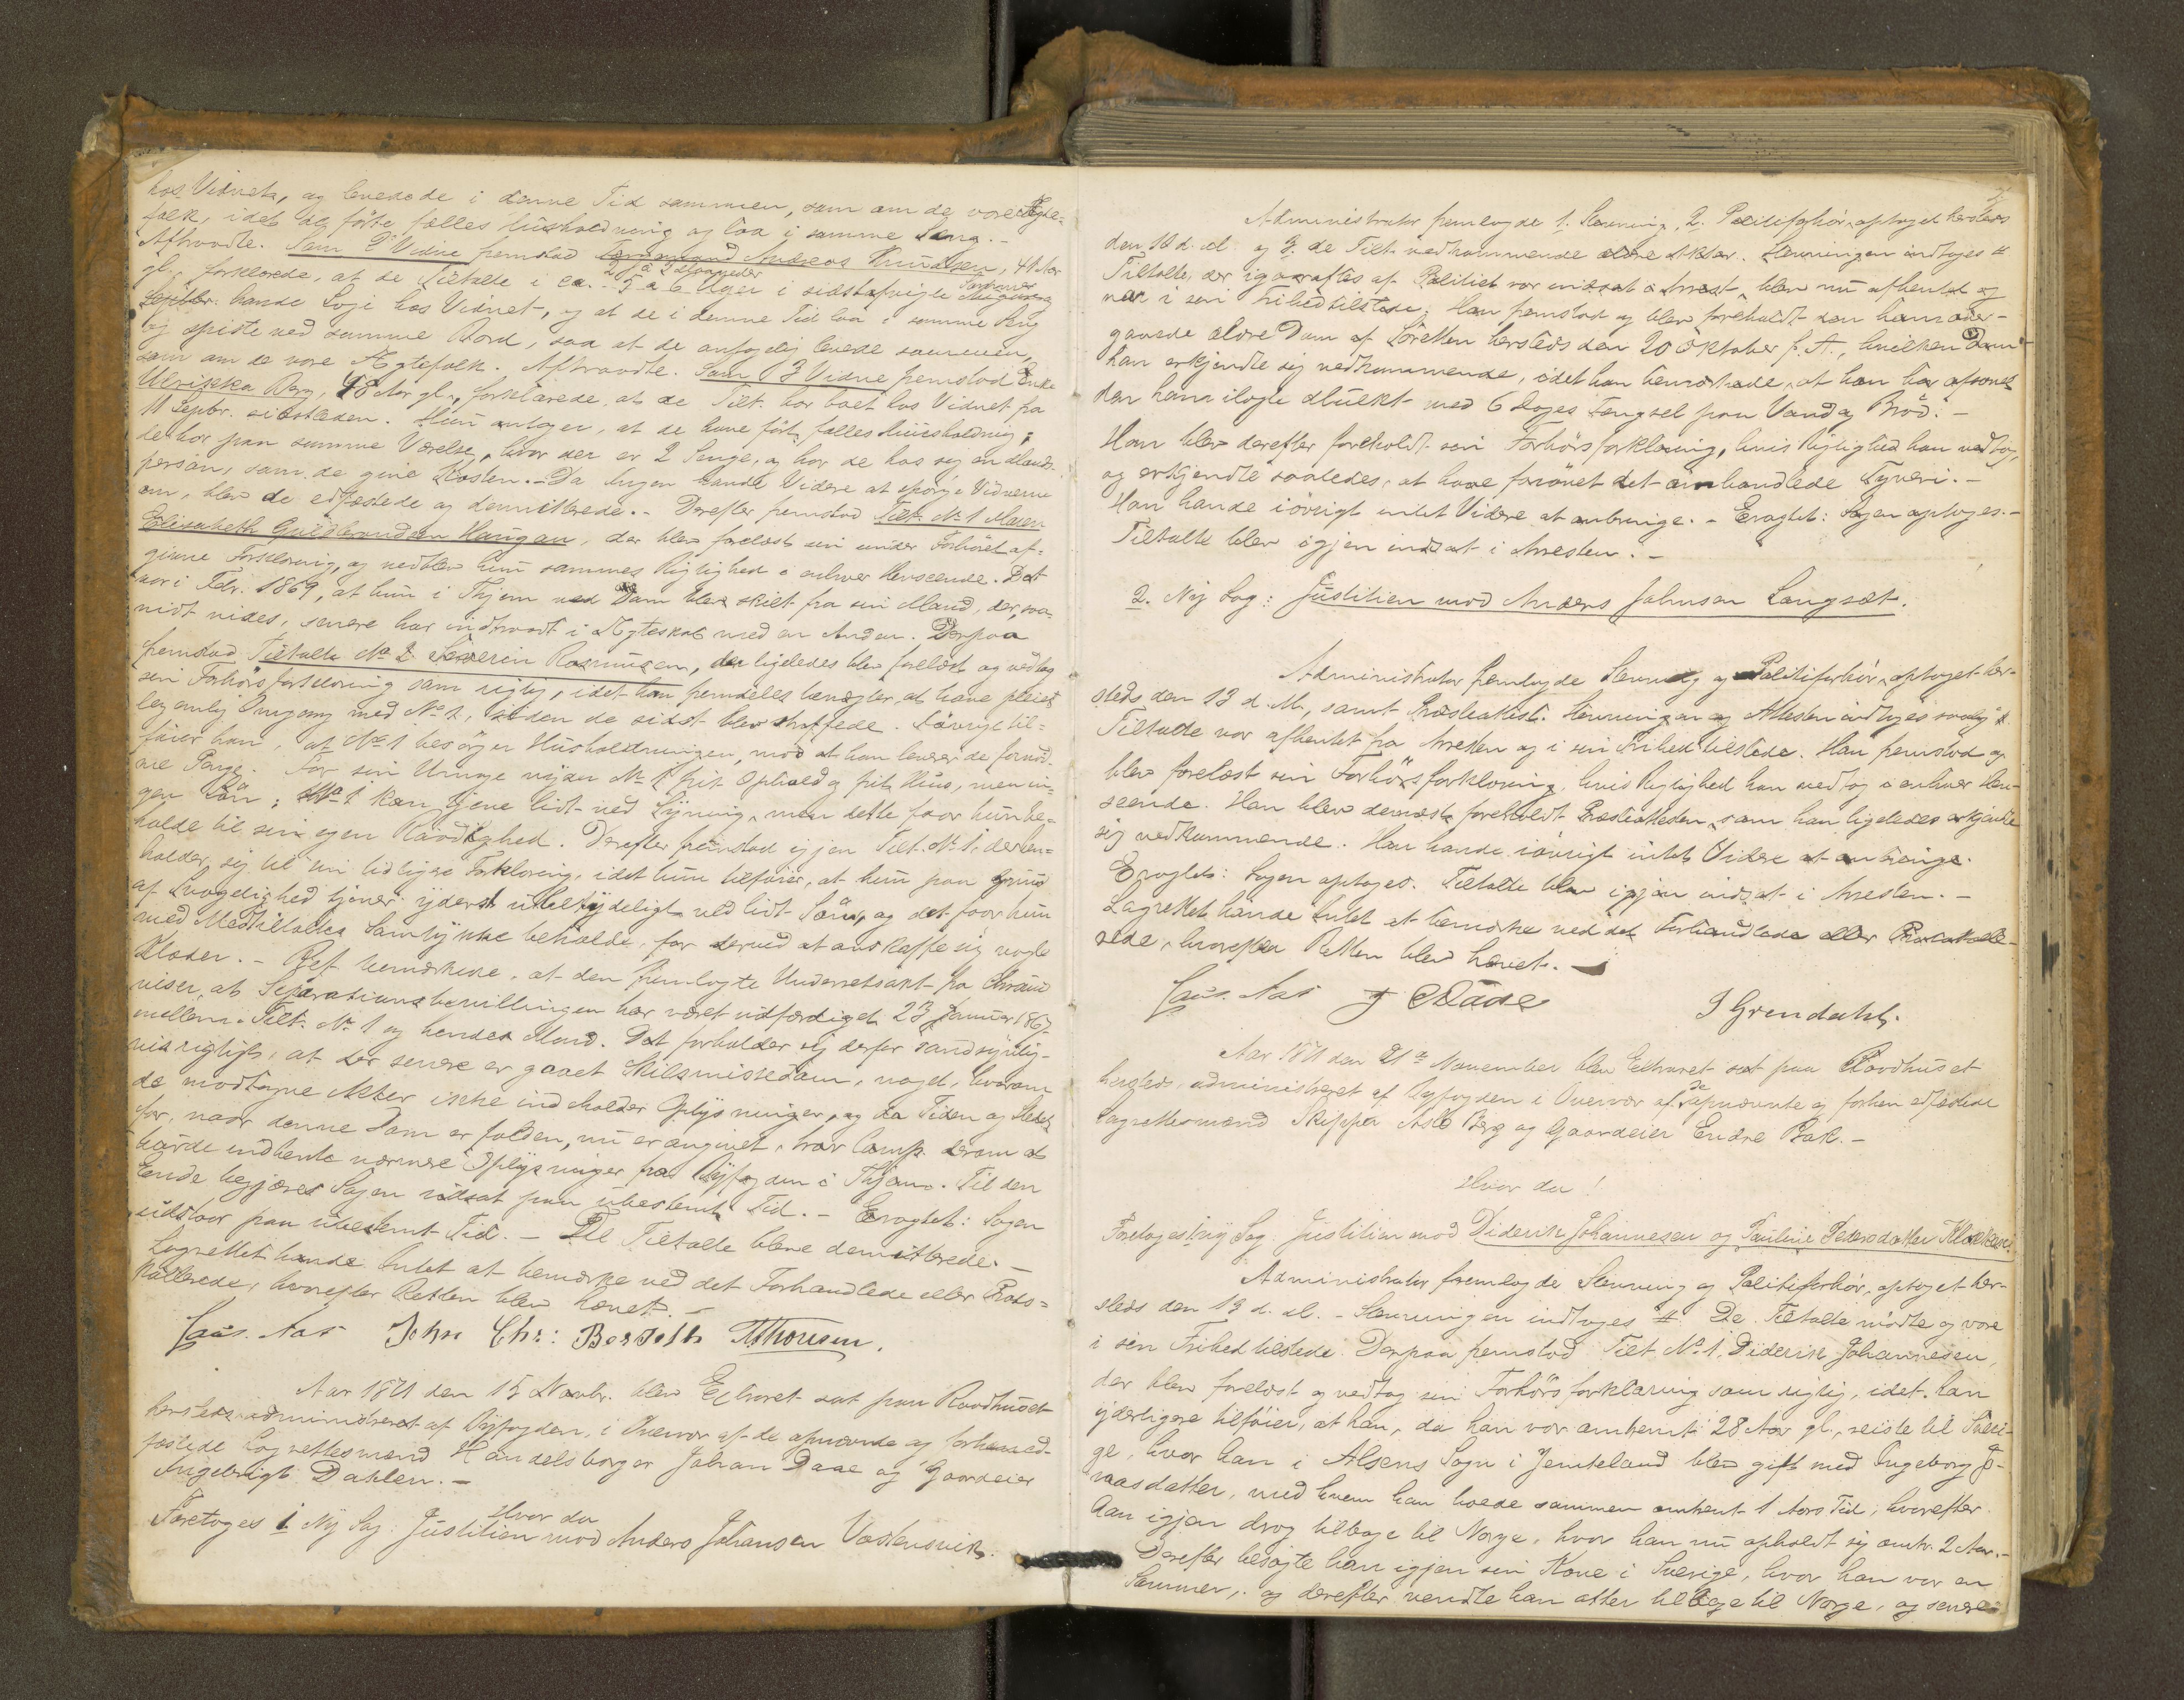 hos Vidnet, og levede i denne Tid sammen, som om de vare Ægte-
folk, idet de førte fælles Huusholdning og laa i samme Seng. -
Aftraadte. Som 2det Vidne fremstod Andreas Knudsen, 41 Aar
gl., forklarede, at de Tiltalte i ca. 5 a 6 Uger i sidstafvigte
2 a 3 Maaneder
Septbr. havde Logi hos Vidnet, og at de i denne Tid laa i samme Seng
og spiste ved samme Bord, saa at de aabenbart levede sammen,
som om de vare Ægtefolk. Aftraadte. Som 3 Vidne fremstod Enke
Ulrikka Berg, 48 Aar gl., forklarede, at de Tilt. har boet hos Vidnet fra
11 Septbr. sidstleden. Hun antager, at de have ført fælles Huusholdning;
de bor paa samme Værelse, hvor der er 2 Senge, og har de hos sig en Mands-
person, som de give Kosten. - Da Ingen havde Videre at spørge Vidnerne
om, blev de edfæstede og demitterede. - Derefter fremstod Tilt. No 1 Maren
Elisabeth Guldbrandsen Haugan, der blev forelæst sin under Forhøret af-
givne Forklaring, og vedblev hun sammes Rigtighed i enhver Henseende. Det
var i Febr. 1869, at hun i Thjem ved Dom blev skilt fra sin Mand, der, saa-
vidt vides, senere har indtraadt i Ægteskab med en Anden. Derpaa
fremstod Tiltalte No 2 Severin Rasmussen, der ligeledes blev forelæst og vedtog
sin Forhørsforklaring som rigtig, idet han fremdeles benægter at have pleiet
legemlig Omgang med No 1, siden de sidst blev straffede. Iøvrigt til-
føier han, at No 1 besørger Husholdningen, mod at han leverer de fornød-
ne Penge. For sin Umage nyder No 1 frit Ophold og frit Hus, men in-
gen Løn; No 1 kan tjene lidt ved Syning, men dette faar hun be-
holde til sin egen Raadighed. Derefter fremstod igjen Tilt. No 1, der hen-
holder sig til sin tidligere Forklaring, idet hun tilføier, at hun paa Grund
af Svagelighed tjener yderst ubetydeligt ved lidt Søm, og det faar hun
med Medtiltaltes Samtykke beholde, for derved at anskaffe sig nogle
Klæder. - Ref. bemærkede, at den fremlagte Underretsakt fra
viser, at Separationsbevillingen har været udfærdiget 23 Januar 1867
mellem Tilt. No 1 og hendes Mand. Det forholder sig derfor sandsynlig-
vis rigtigt, at der senere er gaaet Skilsmissedom, noget, hvorom
de modtagne Akter ikke indeholder Oplysninger, og da Tiden og Stedet
for, naar denne Dom er falden, nu er angivet, har Comp. derom at
burde indhente nærmere Oplysninger fra Byfogden i Thjem. Til den
Ende begjæres Sagen udsat paa ubestemt Tid. - Eragtet: Sagen
udstaar paa ubestemt Tid. - De Tiltalte bleve demitterede. -
Lagrettet havde Intet at bemærke ved det Forhandlede eller Proto-
kollerede, hvorefter Retten blev hævet. -
Caus. Aas John Chr: Berseth Thonsen.
Aar 1871 den 15 Novbr. blev Extraret sat paa Raadhuset
hersteds administreret af Byfogden, i Overvær af de opnævnte og forhen ed-
fæstede Lagrettesmænd Handelsborger Johan Daae og Gaardeier
Ingebrigt Dahlen. -
Hvor da
Foretoges 1 Ny Sag: Justitien mod Anders Johansen Vadsensvik.
Administrator fremlagde 1. Stevning, 2. Politiforhør, optaget hersteds
den 10 d. M. og 3. de Tilt. vedkommende ældre Akter. Stevningen indtages #
Tiltalte, der igaaraftes af Politiet var indsat i Arrest, blev nu afhentet og
var i sin Frihed tilstede. Han fremstod og blev foreholdt den ham over-
gaaede ældre Dom af Søretten hersteds den 20 Oktober f. A., hvilken Dom
han erkjendte sig vedkommende, idet han bemærkede, at han har afsonet
den ham ilagte Mulkt med 6 Dages Fængsel paa Vand og Brød. -
Han blev derefter foreholdt sin Forhørsforklaring, hvis Rigtighed han vedtog,
og erkjendte saaledes, at have forøvet det omhandlede Tyveri. -
Han havde iøvrigt intet Videre at anbringe. - Eragtet: Sagen optages. -
Tiltalte blev igjen indsat i Arresten. -
2. Ny Sag: Justitien mod Anders Johnsen Langsæt.
Administrator fremlagde Stevning og Politiforhør, optaget her-
steds den 13 d. M., samt Præsteattest. Stevningen og Attesten indtages saalyd. #
Tiltalte var afhentet fra Arresten og i sin Frihed tilstede. Han fremstod og
blev forelæst sin Forhørsforklaring, hvis Rigtighed han vedtog i enhver Hen-
seende. Han blev dernæst foreholdt Præsteattesten, som han ligeledes erkjendte
sig vedkommende. Han havde iøvrigt intet Videre at anbringe.
Eragtet: Sagen optages. Tiltalte blev igjen indsat i Arresten. -
Lagrettet havde Intet at bemærke ved det Forhandlede eller Protokolle-
rede, hvorefter Retten blev hævet. -
Caus. Aas J Daae I Grendahl.
Aar 1871 den 21de November blev Extraret sat paa Raadhuset
hersteds, administreret af Byfogden i Overvær af de opnævnte og forhen edfæstede
Lagrettesmænd Skipper Asle Berg og Gaardeier Endre Bak. -
Hvor da!
Foretoges Ny Sag Justitien mod Diderik Johannesen og Pauline Pedersdatter
Administrator fremlagde Stevning og Politiforhør, optaget her-
steds den 13 d. M. - Stevningen indtages #. De Tiltalte mødte og vare
i sin Frihed tilstede. Derpaa fremstod Tilt No. 1, Diderik Johannesen,
der blev forelæst og vedtog sin Forhørsforklaring som rigtig, idet han
yderligere tilføier, at han, da han var omtrent 28 Aar gl., reiste til Sveri-
ge, hvor han i Alsens Sogn i Jemteland blev gift med Ingeborg Jo-
nasdatter, med hvem han boede sammen omtrent 1 Aars Tid, hvorefter
han igjen drog tilbage til Norge, hvor han nu opholdt sig omtr. 2 Aar. -
Derefter besøgte han igjen sin Kone i Sverige, hvor han var en
Sommer, og derefter vendte han atter tilbage til Norge, og senere